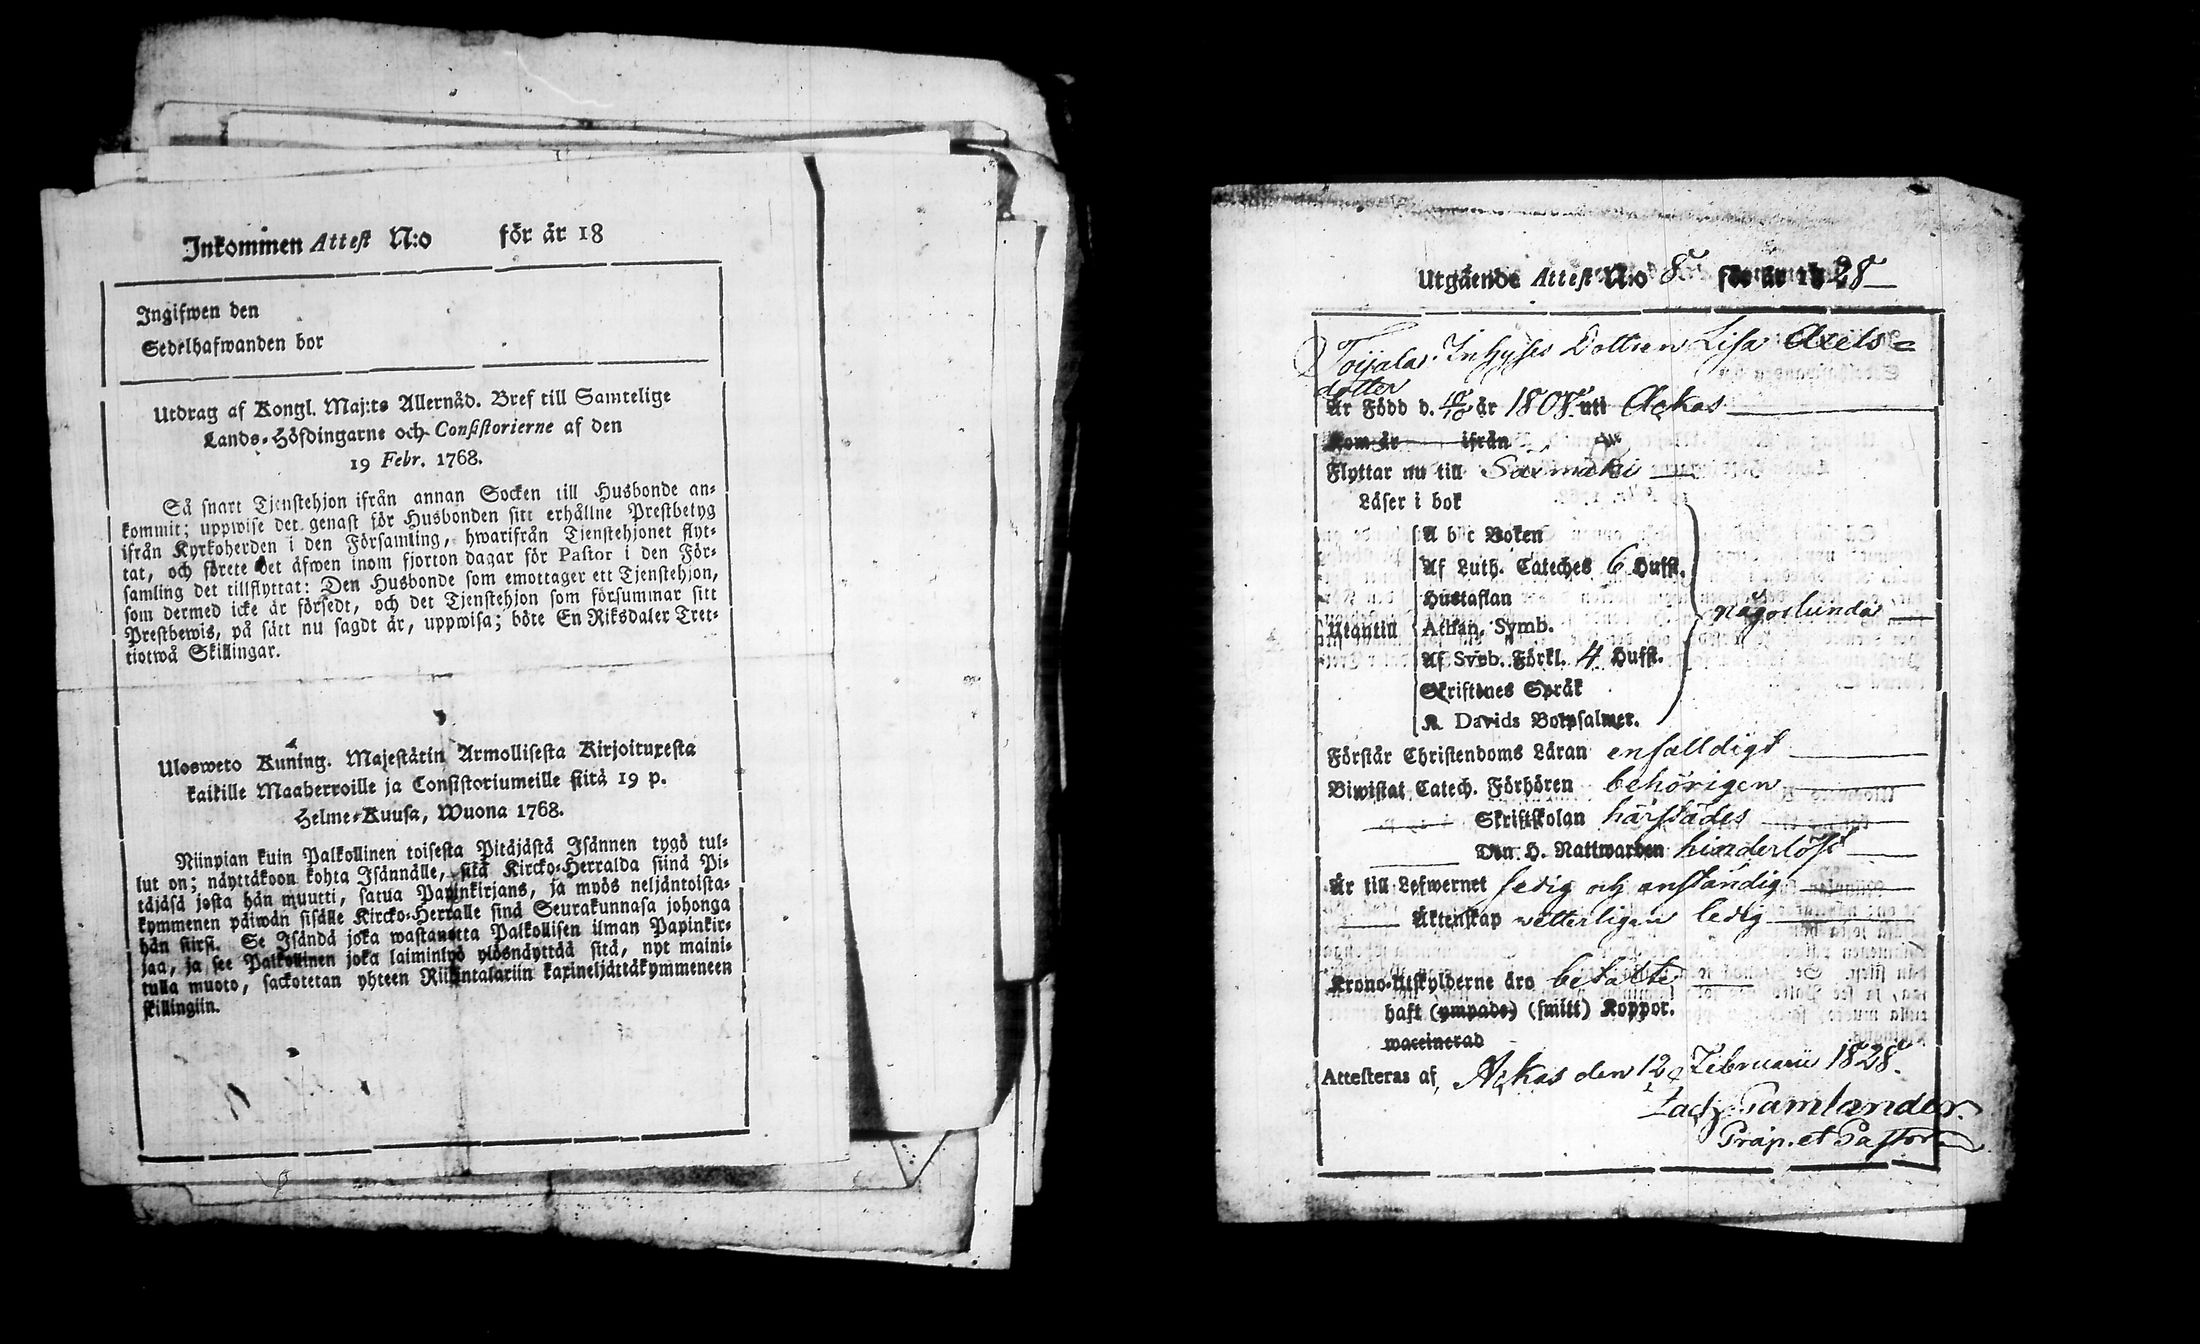 Inkommen Attest N:o för år 18
Ingifwen den
Sedelhafwanden bor
Utdrag af Kongl. Maj:ts Allernåd. Bref till Samtelige
Lands-Höfdingarne och Consistorierne af den
19 Febr. 1768.
Så snart Tjenstehjon ifrån annan Socken till Husbonde an-
kommit; uppwise det genast för Husbonden sitt erhållne Prestbetyg
ifrån Kyrkoherden i den Församling, hwarifrån Tjenstehjonet flyt-
tat, och förete det äfwen inom fjorton dagar för Pastor i den För-
samling det tillflyttat: Den Husbonde som emottager ett Tjenstehjon,
som dermed icke är försedt, och det Tjenstehjon som försummar sitt
Prestbewis, på sätt nu sagdt är, uppwisa; böte En Riksdaler Tret-
tiotwå Skillingar.
Ulosweto Kuning. Majestätin Armollisesta Kirjoituxesta
kaikille Maaherroille ja Consistoriumeille siitä 19 p.
Helme-Kuusa, Wuona 1768.
Niinpian kuin Palkollinen toisesta Pitäjästä Isännen tygö tul-
lut on; näyttäkoon kohta Isännälle, sitä Kircko-Herralda siinä Pi-
täjäsä josta hän muutti, satua Papinkirjans, ja myös neljäntoista-
kymmenen päiwän sisälle Kircko-Herralle sinä Seurakunnasa johonga
hän siirsi. Se Isändä joka wastanotta Palkollisen ilman Papinkir-
jaa, ja see Palkollinen joka laiminlyö ylösnäyttää sitä, nyt maini-
tulla muoto, sackotetan yhteen Riikintalariin kaxineljättäkymmeneen
skillingiin.
Utgående Attest N:o 8 för år 1828
Toijala Inhyses Dottren Lisa Axels-
dotter
Är Född d. 10/10 år 1808 uti Ackas
Kom år ifrån
Flyttar nu till Säxmäki
Läser i bok
A b c Boken
Af Luth. Cateches 6 Hufst.
Hustaflan
Utantill Athan. Symb. någorlunda
Af Sveb. Förkl. 4 Hufst.
Skriftenes Språk
K. Davids Botpsalmer.
Förstår Christendoms Läran enfalldigt
Biwistat Catech. Förhören behörigen
Skriftskolan härstädes
Den H. Nattwarden hinderlöst
Är till Lefwernet sedig och anständig
Äktenskap wetterligen ledig
Krono-Utskylderne äro betalte
haft (ympade) (smitt) Koppor.
waccinerad
Attesteras af, Ackas den 12 Februarii 1828.
Zach. Gamlander.
Præp. et Pastor